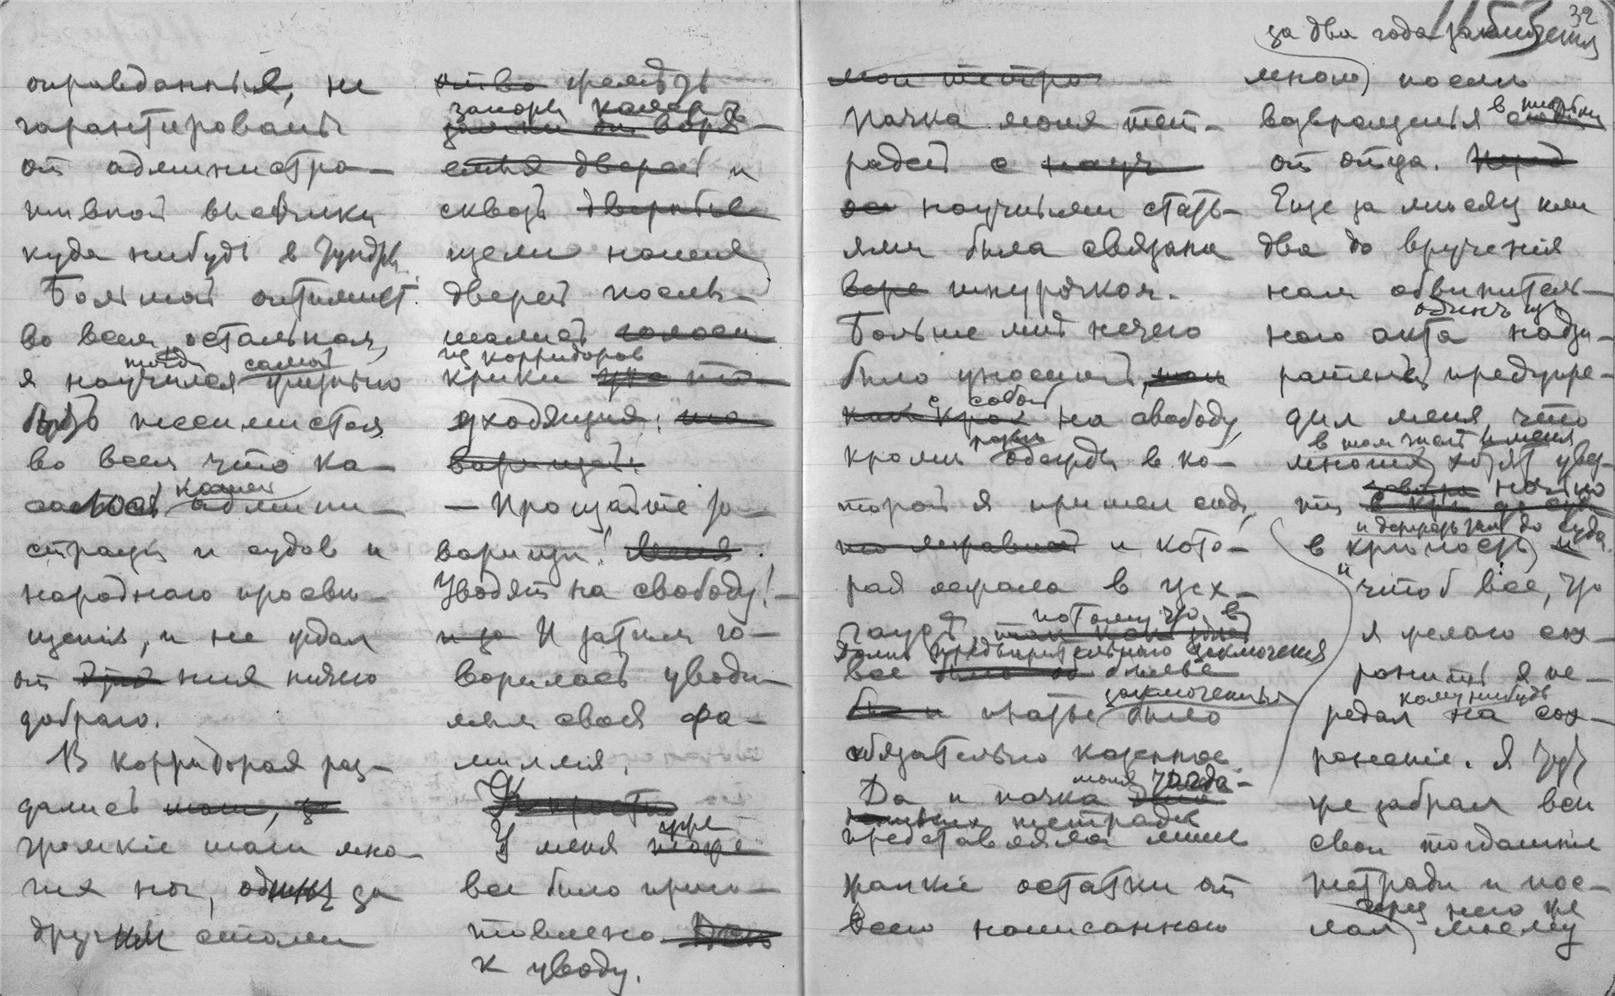 оправданный, не
гарантированы
от администра-
тивной высылки
куда нибудь в тундры.
Большой оптимист
во всем остальном,
я научился тогда самой
быть пессимистом
во всем что ка-
салось нашей админи-
страции и судов и
народнаго просвѣ-
щенія, и не ждал
от них ничего
добраго.
В корридорах раз-
дались
громкіе шаги мно-
гих ног, один за
другим стали
греметь
запоры камер
и
сквозь
щели моей
двери посы-
шались
из корридоров
крики
уходящих:
— Прощайте то-
варищи!
Уводят на свободу! —
И затем го-
ворилась уводи-
мым своя фа-
милія.
У меня уже
все было приго-
товлено
к уводу.
Пачка моих тет-
радей с
научными стать-
ями была связана
шнурочком.
Больше мнѣ нечего
было уносить
с собой на свободу,
кромѣ одежды в ко-
торой я пришел сюда,
и кото-
рая лежала в цех-
гаузѣ, потому что в
Домѣ предварительнаго заключенія
все бѣлье
и платье заключенных было
обязательно казенное.
Да и пачка моих тетрадок
представляла лишь
жалкіе остатки от
всего написаннаго
32
1153
за два года заключенія
мною послѣ
возвращенія в тюрьму
от отца.
Еще за мѣсяц или
два до врученія
нам обвинитель-
наго акта один из надзи-
рателей предупре-
дил меня, что
многих хотят увез-
ти
в крѣпость и держать там до суда
и чтоб все, что
я желаю сох-
ранить я пе-
редал кому нибудь на сох-
раненіе. Я тут
же забрал всѣ
свои тогдашніе
тетради и пос-
лал через него же
моему